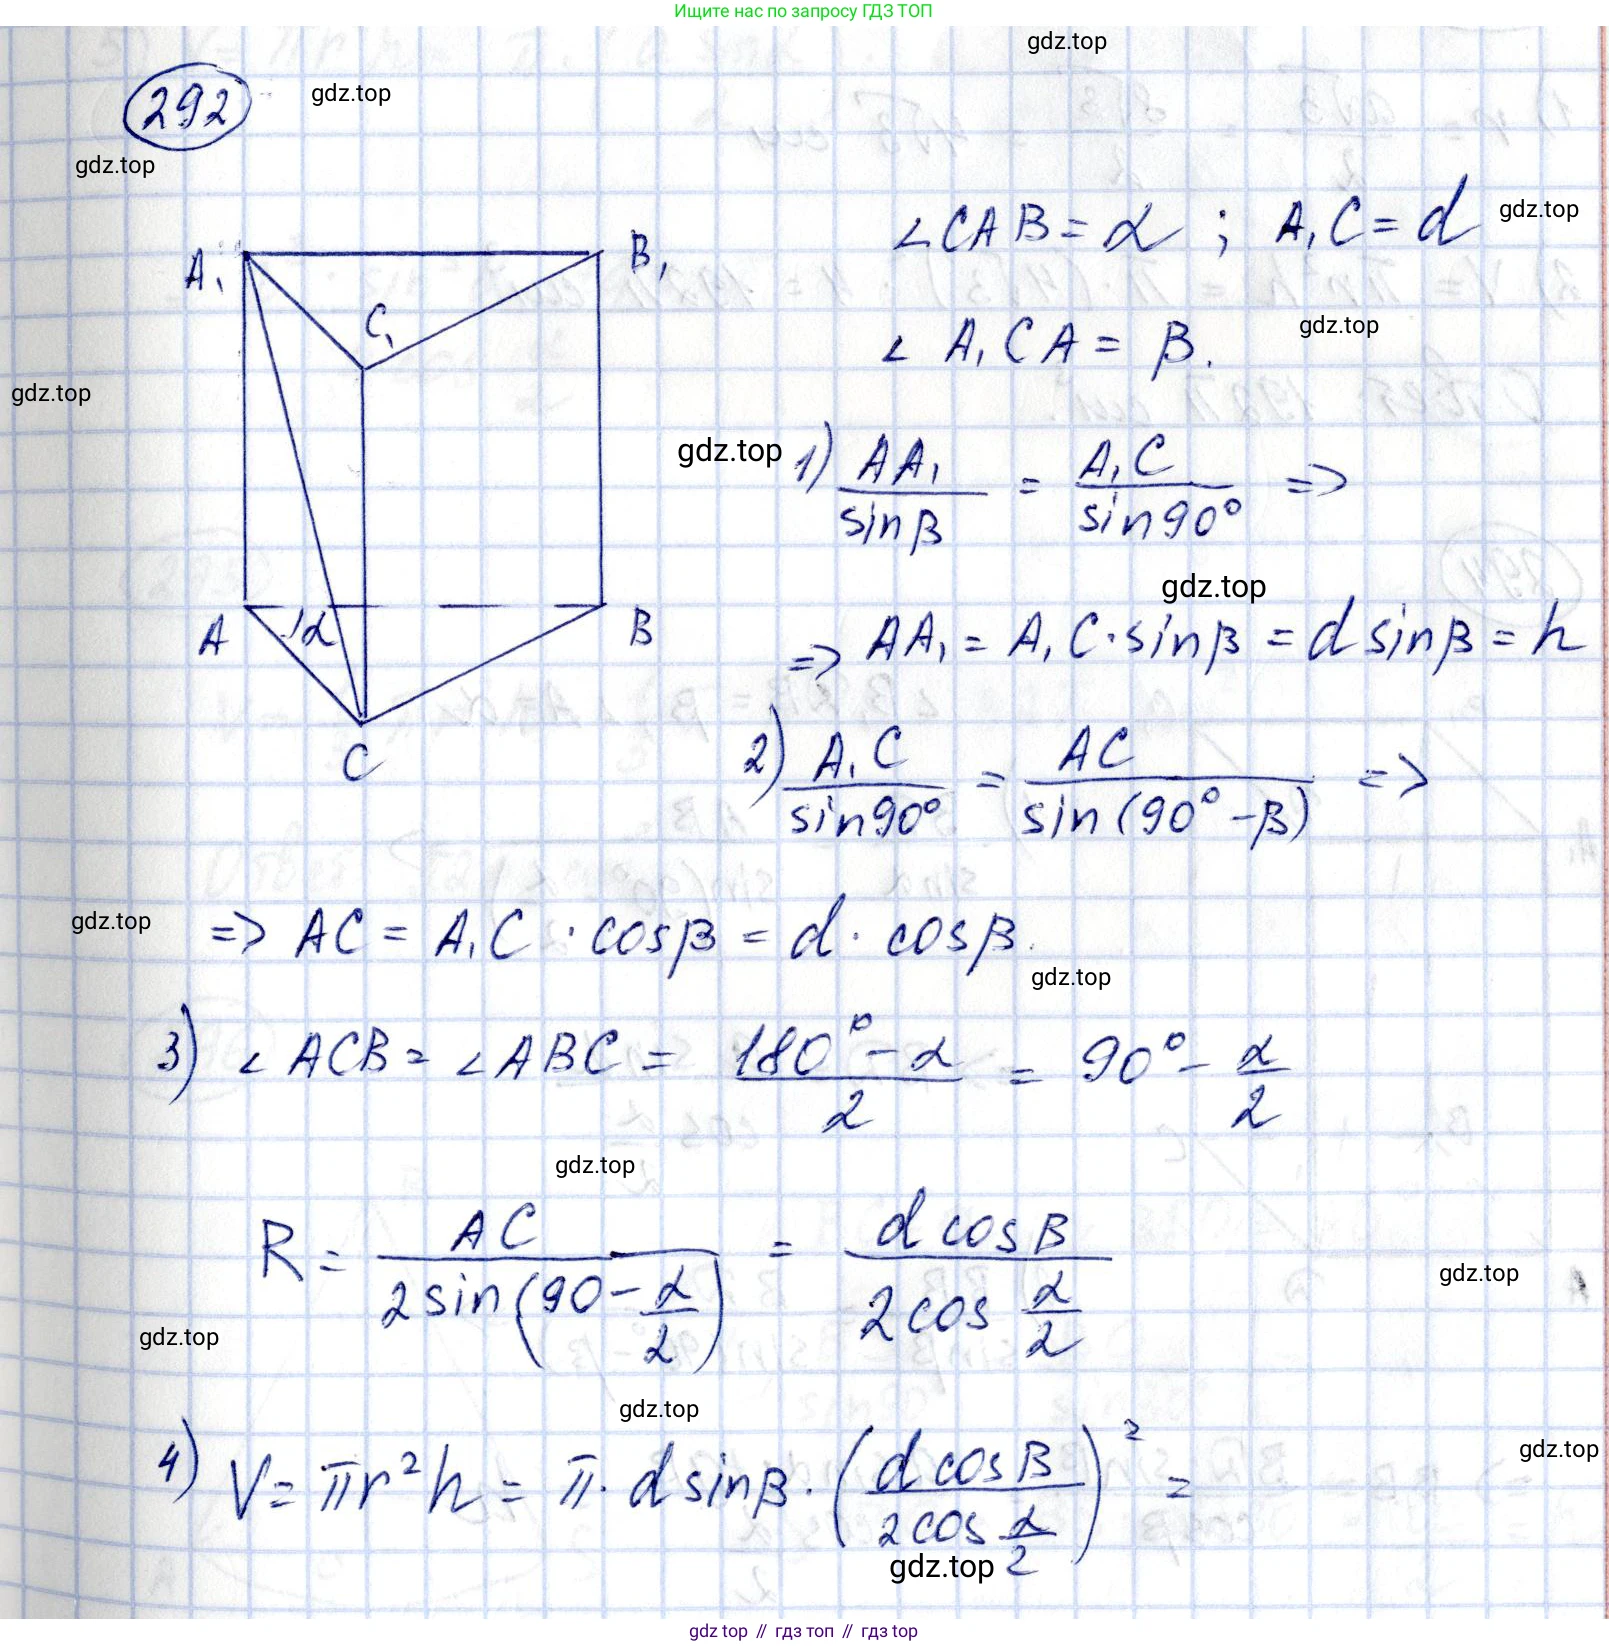 Ищите нас по запросу ГДЗ ТОП
gdz.top
292
gdz.top
gdz.top
∠CAB = α ; A₁C = d
gdz.top
A₁
B₁
C₁
∠ A₁CA = β.
gdz.top
gdz.top
gdz.top
1) AA₁/sinβ = A₁C/sin90° =>
gdz.top
A
α
B
C
=> AA₁ = A₁C·sinβ = d sinβ = h
2) A₁C/sin90° = AC/sin(90°-β) =>
gdz.top
=> AC = A₁C · cosβ = d · cosβ.
gdz.top
3) ∠ACB = ∠ABC = (180° - α)/2 = 90° - α/2
gdz.top
R = AC/(2sin(90 - α/2)) = d cosβ/(2cos α/2)
gdz.top
gdz.top
gdz.top
4) V = πr²h = π · d sinβ · (d cosβ/(2cos α/2))² =
gdz.top
gdz.top
gdz top // гдз топ // гдз top